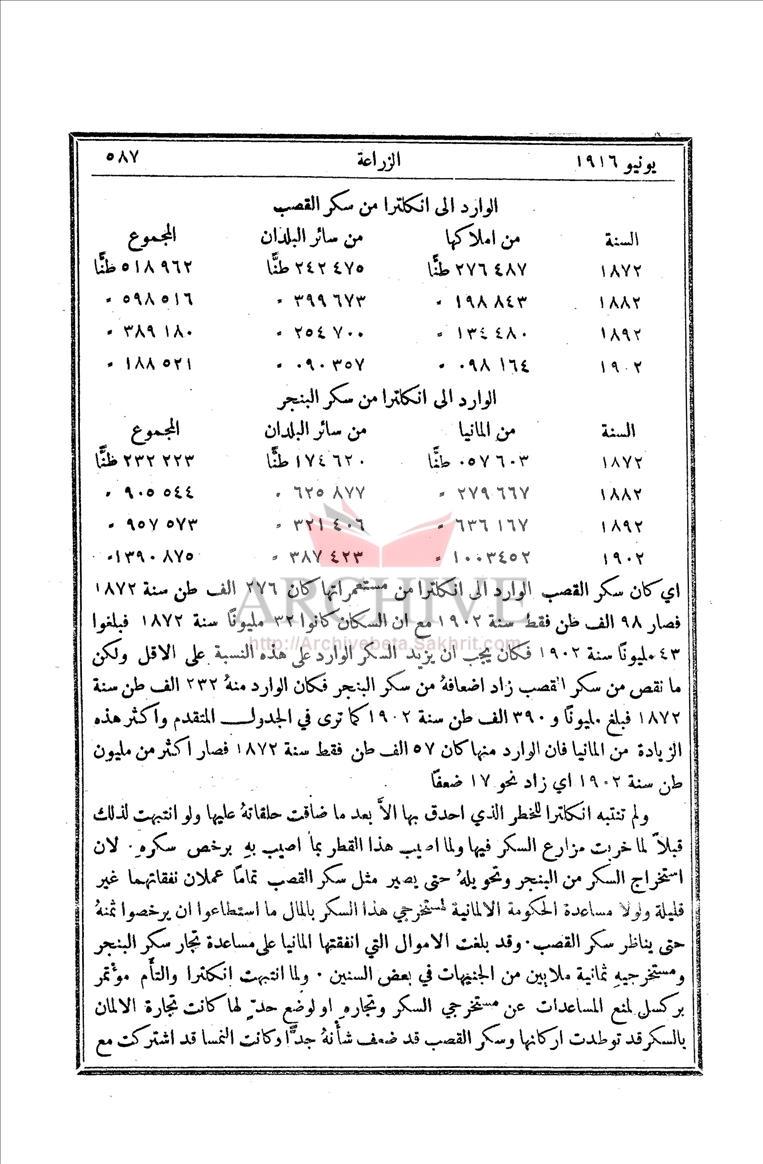 يونيو ١٩١٦ الزراعة ٥٨٧
الوارد الى انكلترا من سكر القصب
السنة من املاكها من سائر البلدان المجموع
١٨٧٢ ٢٧٦ ٤٨٧ طنًّا ٢٤٢ ٤٧٥ طنًّا ٥١٨ ٩٦٢ طنًّا
١٨٨٢ ١٩٨ ٨٤٣ " ٣٩٩ ٦٧٣ " ٥٩٨ ٥١٦ "
١٨٩٢ ١٣٤ ٤٨٠ " ٢٥٤ ٧٠٠ " ٣٨٩ ١٨٠ "
١٩٠٢ ٠٩٨ ١٦٤ " ٠٩٠ ٣٥٧ " ١٨٨ ٥٢١ "
الوارد الى انكلترا من سكر البنجر
السنة من المانيا من سائر البلدان المجموع
١٨٧٢ ٠٥٧ ٦٠٣ طنًّا ١٧٤ ٦٢٠ طنًّا ٢٣٢ ٢٢٣ طنًّا
١٨٨٢ ٢٧٩ ٦٦٧ " ٦٢٥ ٨٧٧ " ٩٠٥ ٥٤٤ "
١٨٩٢ ٦٣٦ ١٦٧ " ٣٢١ ٤٠٦ " ٩٥٧ ٥٧٣ "
١٩٠٢ ١٠٠٣٤٥٢ " ٣٨٧ ٤٢٣ " ١٣٩٠ ٨٧٥ "
اي كان سكر القصب الوارد الى انكلترا من مستعمراتها كان ٢٧٦ الف طن سنة ١٨٧٢
فصار ٩٨ الف طن فقط سنة ١٩٠٢ مع ان السكان كانوا ٣٢ مليونًا سنة ١٨٧٢ فبلغوا
٤٣ مليونًا سنة ١٩٠٢ فكان يجب ان يزيد السكر الوارد على هذه النسبة على الاقل ولكن
ما نقص من سكر القصب زاد اضعافهُ من سكر البنجر فكان الوارد منهُ ٢٣٢ الف طن سنة
١٨٧٢ فبلغ مليونًا و ٣٩٠ الف طن سنة ١٩٠٢ كما ترى في الجدول المتقدم واكثر هذه
الزيادة من المانيا فان الوارد منها كان ٥٧ الف طن فقط سنة ١٨٧٢ فصار اكثر من مليون
طن سنة ١٩٠٢ اي زاد نحو ١٧ ضعفًا
ولم تنتبه انكلترا للخطر الذي احدق بها الاَّ بعد ما ضاقت حلقاتهُ عليها ولو انتبهت لذلك
قبلاً لما خربت مزارع السكر فيها ولما اصيب هذا القطر بما اصيب بهِ برخص سكرهِ. لان
استخراج السكر من البنجر وتحويلهُ حتى يصير مثل سكر القصب تمامًا عملان نفقاتهما غير
قليلة ولولا مساعدة الحكومة الالمانية لمستخرجي هذا السكر بالمال ما استطاعوا ان يرخصوا ثمنهُ
حتى يناظر سكر القصب. وقد بلغت الاموال التي انفقتها المانيا على مساعدة تجار سكر البنجر
ومستخرجيهِ ثمانية ملايين من الجنيهات في بعض السنين. ولما انتبهت انكلترا والتأم مؤتمر
بركسل لمنع المساعدات عن مستخرجي السكر وتجارهِ او لوضع حدٍّ لها كانت تجارة الالمان
بالسكر قد توطدت اركانها وسكر القصب قد ضعف شأنهُ جدًّا وكانت النمسا قد اشتركت مع
ARCHIVE
http://Archivebeta.Sakhrit.com